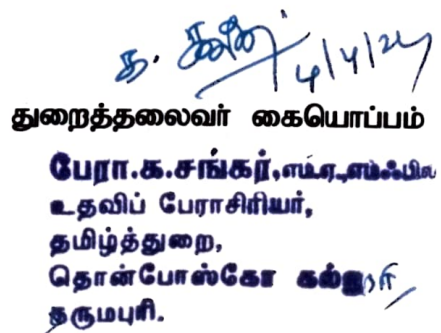 க. சங்கர் 4/4/24
துறைத்தலைவர் கையொப்பம்
பேரா.க.சங்கர்,எம்.ஏ.,எம்ஃபில்
உதவிப் பேராசிரியர்,
தமிழ்த்துறை,
தொன்போஸ்கோ கல்லூரி
தருமபுரி.